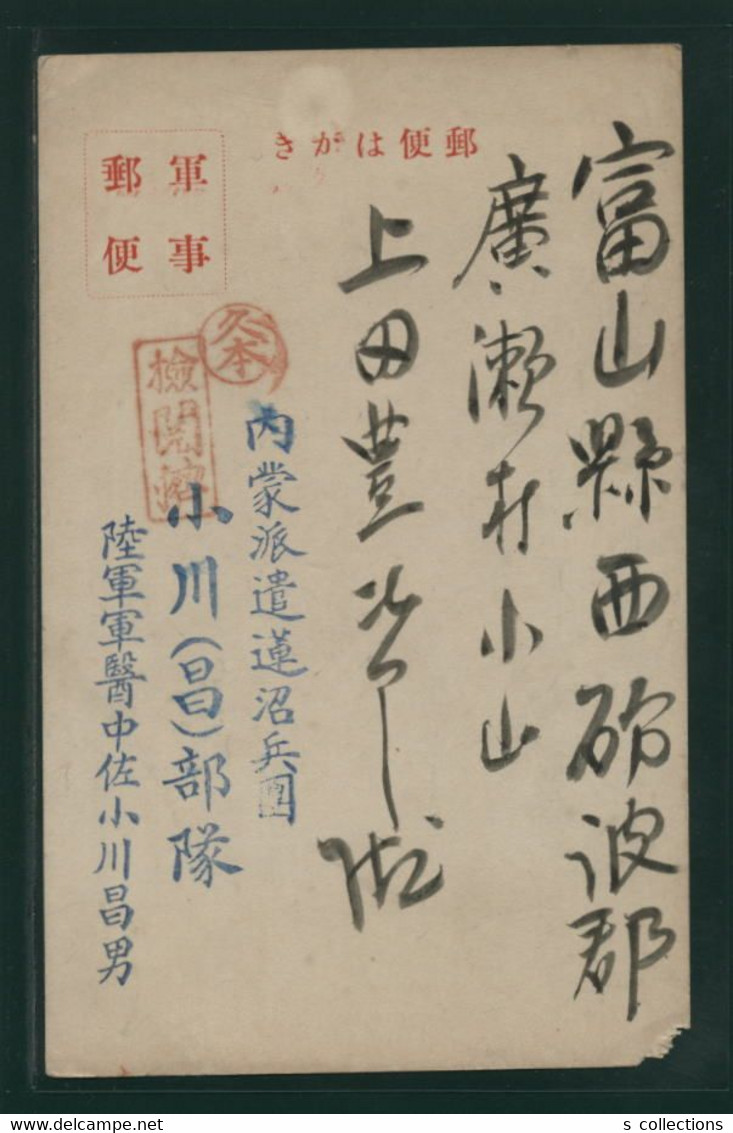 郵便はがき
軍事
郵便
富山縣西砺波郡
廣瀬村小山
上田豊
久本
檢閲濟
内蒙派遣蓮沼兵團
小川(昌)部隊
陸軍軍醫中佐小川昌男
s collections